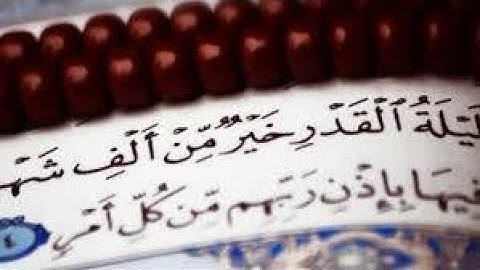 لَيْلَةُ ٱلْقَدْرِ خَيْرٌ مِّنْ أَلْفِ شَهْ
فِيهَا بِإِذْنِ رَبِّهِم مِّن كُلِّ أَمْرٍ ٤